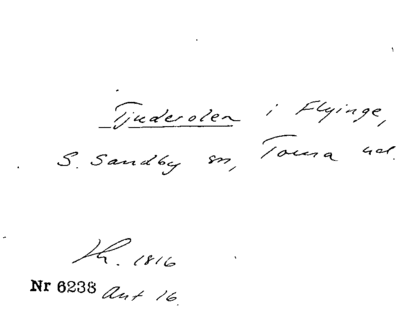 Tjuderoten i Flyinge,
S. Sandby sn, Torna hd.
Kr. 1816
Nr 6238 Ant 16.